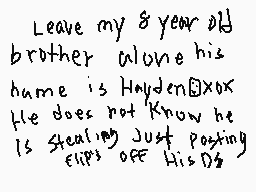 Leave my 8 year old
brother alone his
name is Hayden☺xox
He does not know he
Is stealing Just posting
Flips off His DS